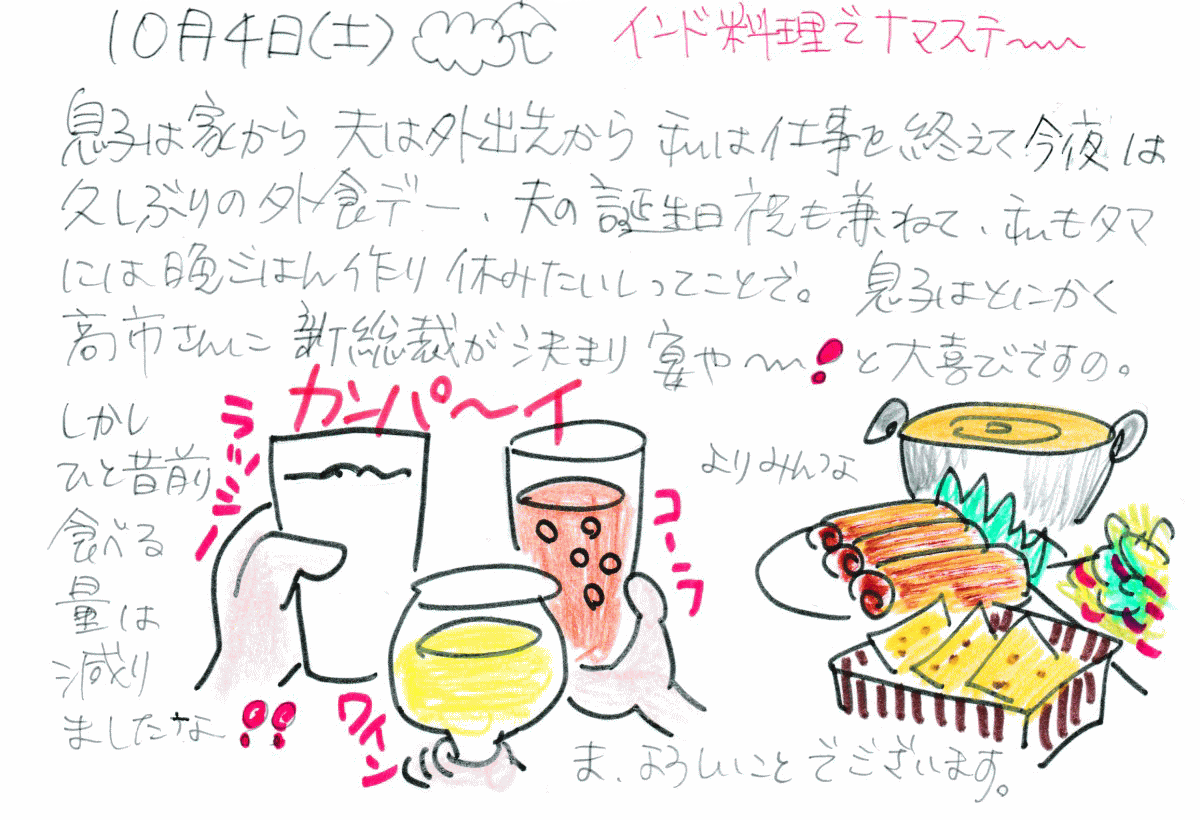 10月4日(土)
インド料理でナマステ〜
息子は家から 夫は外出先から 私は仕事を終えて今夜は
久しぶりの外食デー、夫の誕生日祝も兼ねて、私もタマ
には晩ごはん作り休みたいしってことで。 息子はとにかく
高市さんに 新総裁が決まり 宴や〜!と大喜びですの。
カンパ〜イ
しかし
ひと昔前
よりみんな
食べる
量は
減り
ましたな!!
ラッシー
コーラ
ワイン
ま、よろしいことでございます。